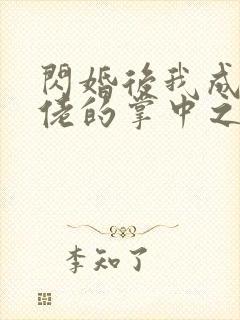 閃婚後我成
佬的掌中之
李知了